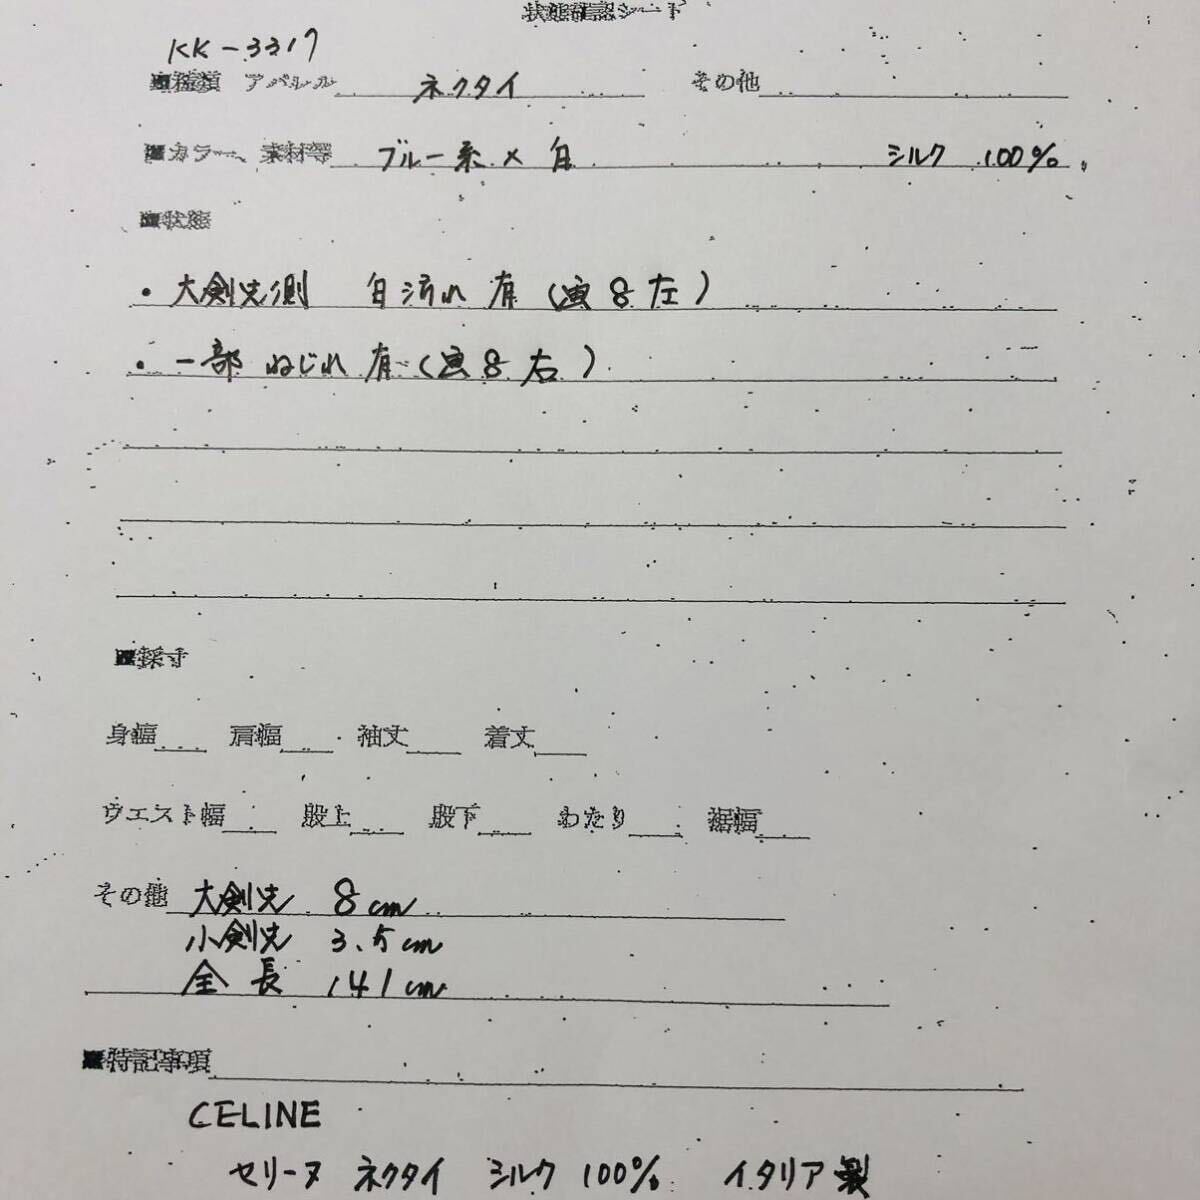 状態確認シート
KK-3317
■種類 アパレル ネクタイ その他
■カラー、素材等 ブルー系×白 シルク 100%
■状態
・大剣先側 目流れ有(画8左)
・一部ねじれ有(画8右)
■採寸
身幅 肩幅 袖丈 着丈
ウエスト幅 股上 股下 わたり 裾幅
その他 大剣先 8cm
小剣先 3.5cm
全長 141cm
■特記事項
CELINE
セリーヌ ネクタイ シルク 100% イタリア製